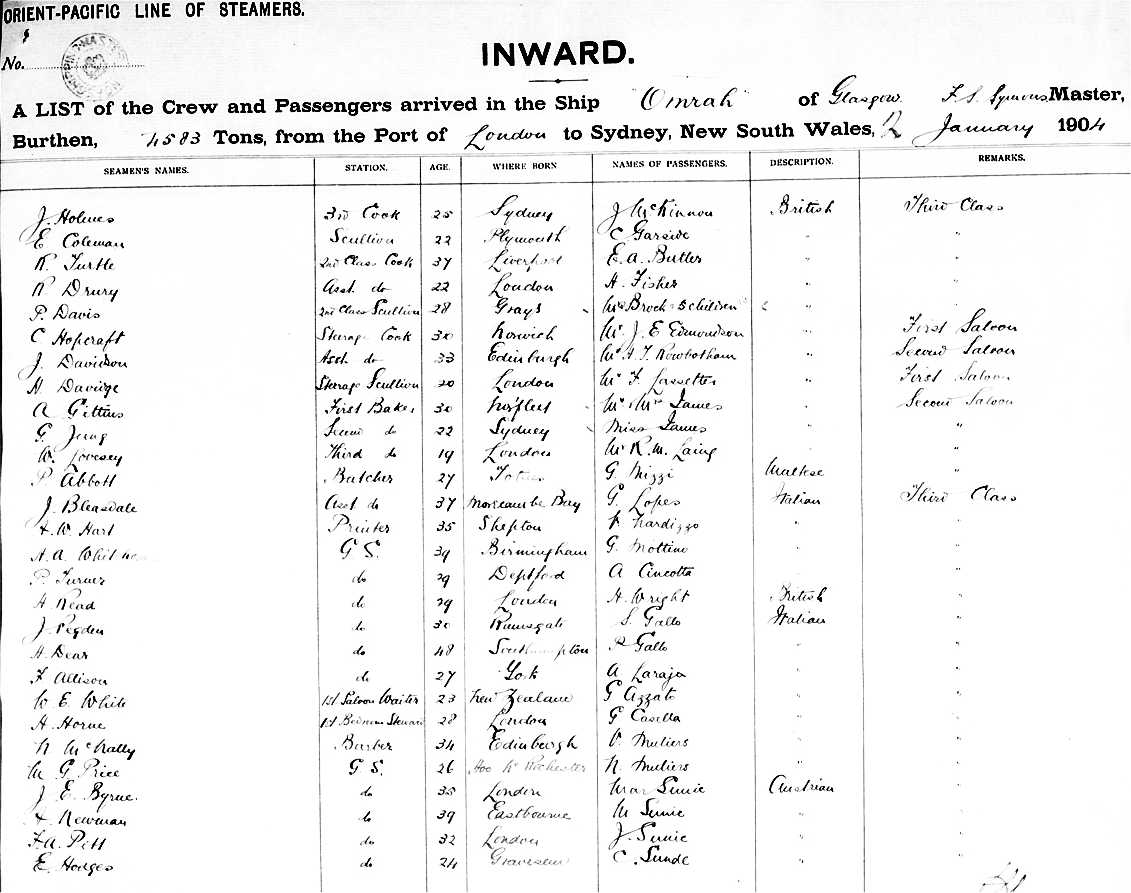 ORIENT-PACIFIC LINE OF STEAMERS.
No.
INWARD.
A LIST of the Crew and Passengers arrived in the Ship "Omrah" of Glasgow F. S. Symons Master,
Burthen, 4583 Tons, from the Port of London to Sydney, New South Wales, 12 January 1904
SEAMEN'S NAMES. STATION. AGE. WHERE BORN NAMES OF PASSENGERS. DESCRIPTION. REMARKS.
J. Holmes 3rd Cook 25 Sydney J McKinnon British Third Class
E Coleman Scullion 22 Plymouth C Garside " "
R. Turtle 2nd Class Cook 37 Liverpool E. A. Butler " "
R Drury Asst. do 22 London H. Fisher " "
P. Davis 2nd Class Scullion 28 Grays Mrs Brock 5 children " "
C Hopcraft Steerage Cook 30 Norwich Mr. J. E Edmondson " First Saloon
J. Davidson Asst. do 33 Edinburgh Mr H. T. Rowbotham " Second Saloon
H Davidge Steerage Scullion 20 London Mr F. Lassetter " First Saloon
A Gittins First Baker 30 Mr & Mrs James " Second Saloon
G. Jung Second do 22 Sydney Miss James " "
W. Lovesey Third do 19 London Mr R. M. Laing " "
P Abbott Butcher 27 Totnes G. Mizzi Maltese "
J. Bleasdale Asst do 37 Morecambe Bay G. Lopes Italian Third Class
H. W. Hart Printer 35 Shepton " "
H. A. G. S. 39 Birmingham G. Mottino " "
P. Turner do 29 Deptford A Cincotta " "
H Read do 29 London H. Wright British "
J. Pegden do 30 Ramsgate S. Gallo Italian "
H Dear do 48 Southampton P Gallo " "
F Allison do 27 York A Laraja " "
W E. White 1st Saloon Waiter 23 New Zealand G Azzato " "
H. Horne 1st Bedroom Steward 28 London G Casella " "
N McNally Barber 34 Edinburgh V. Muliers " "
M G Price G S. 26 Hoo Nr Rochester N Muliers " "
J E. Byrne. do 35 London Mar Sunic Austrian "
H. Newman do 39 Eastbourne M Sunic " "
F. A. Pitt do 32 London J. Sunic " "
E. Hodges do 24 Gravesend C. Sunde " "